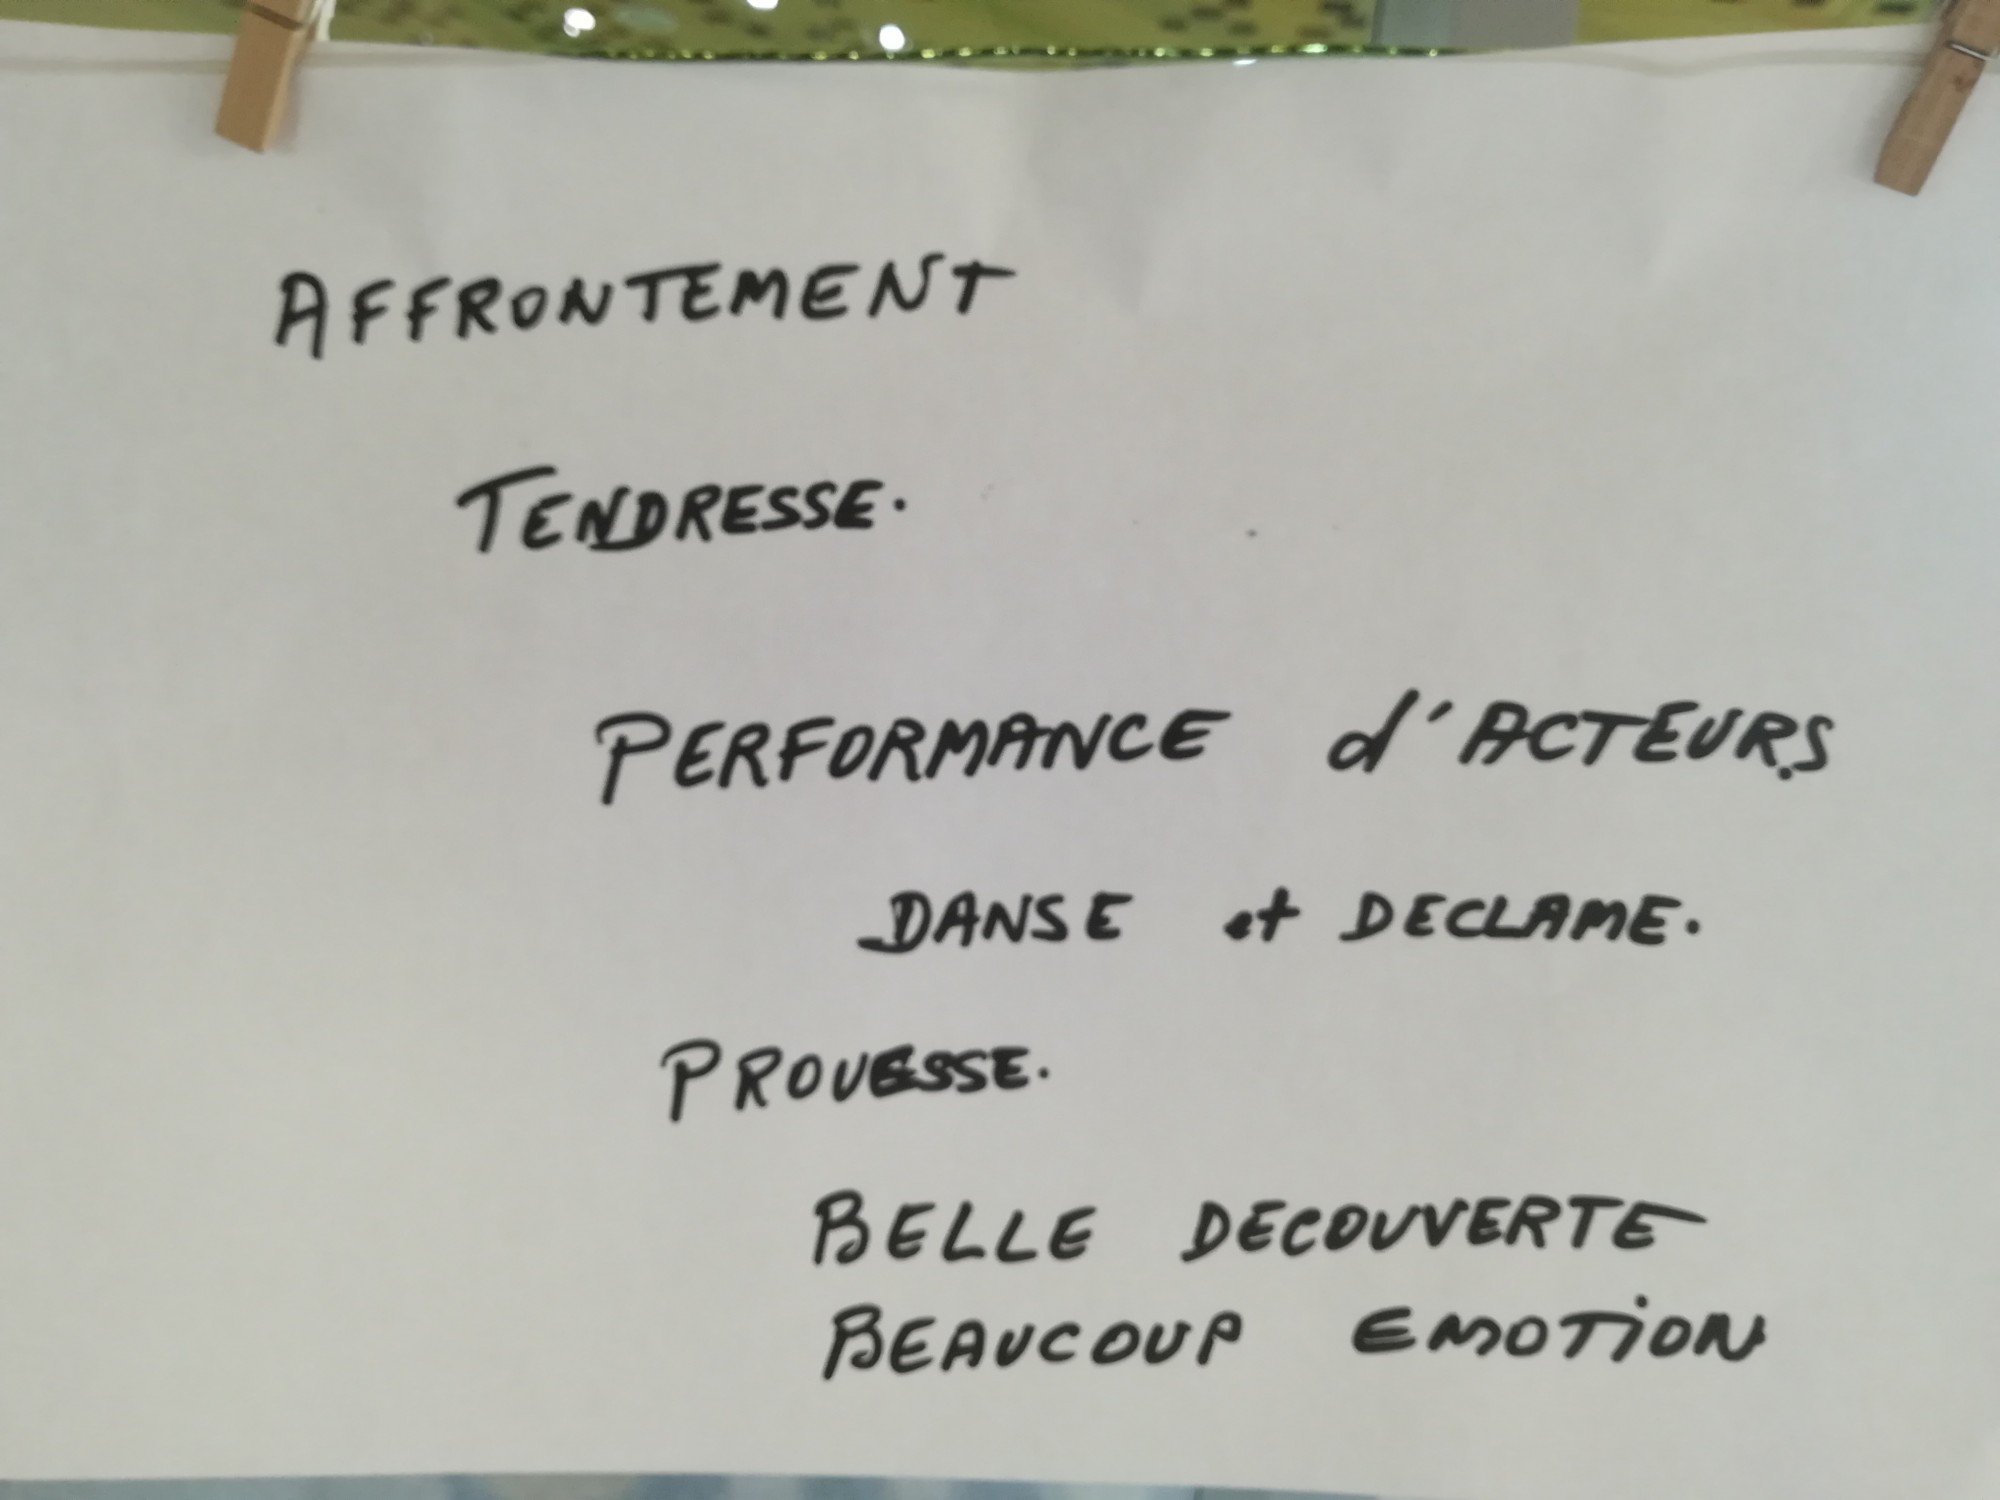 AFFRONTEMENT
TENDRESSE.
PERFORMANCE d'ACTEURS
DANSE et DECLAME.
PROUESSE.
BELLE DECOUVERTE
BEAUCOUP EMOTION